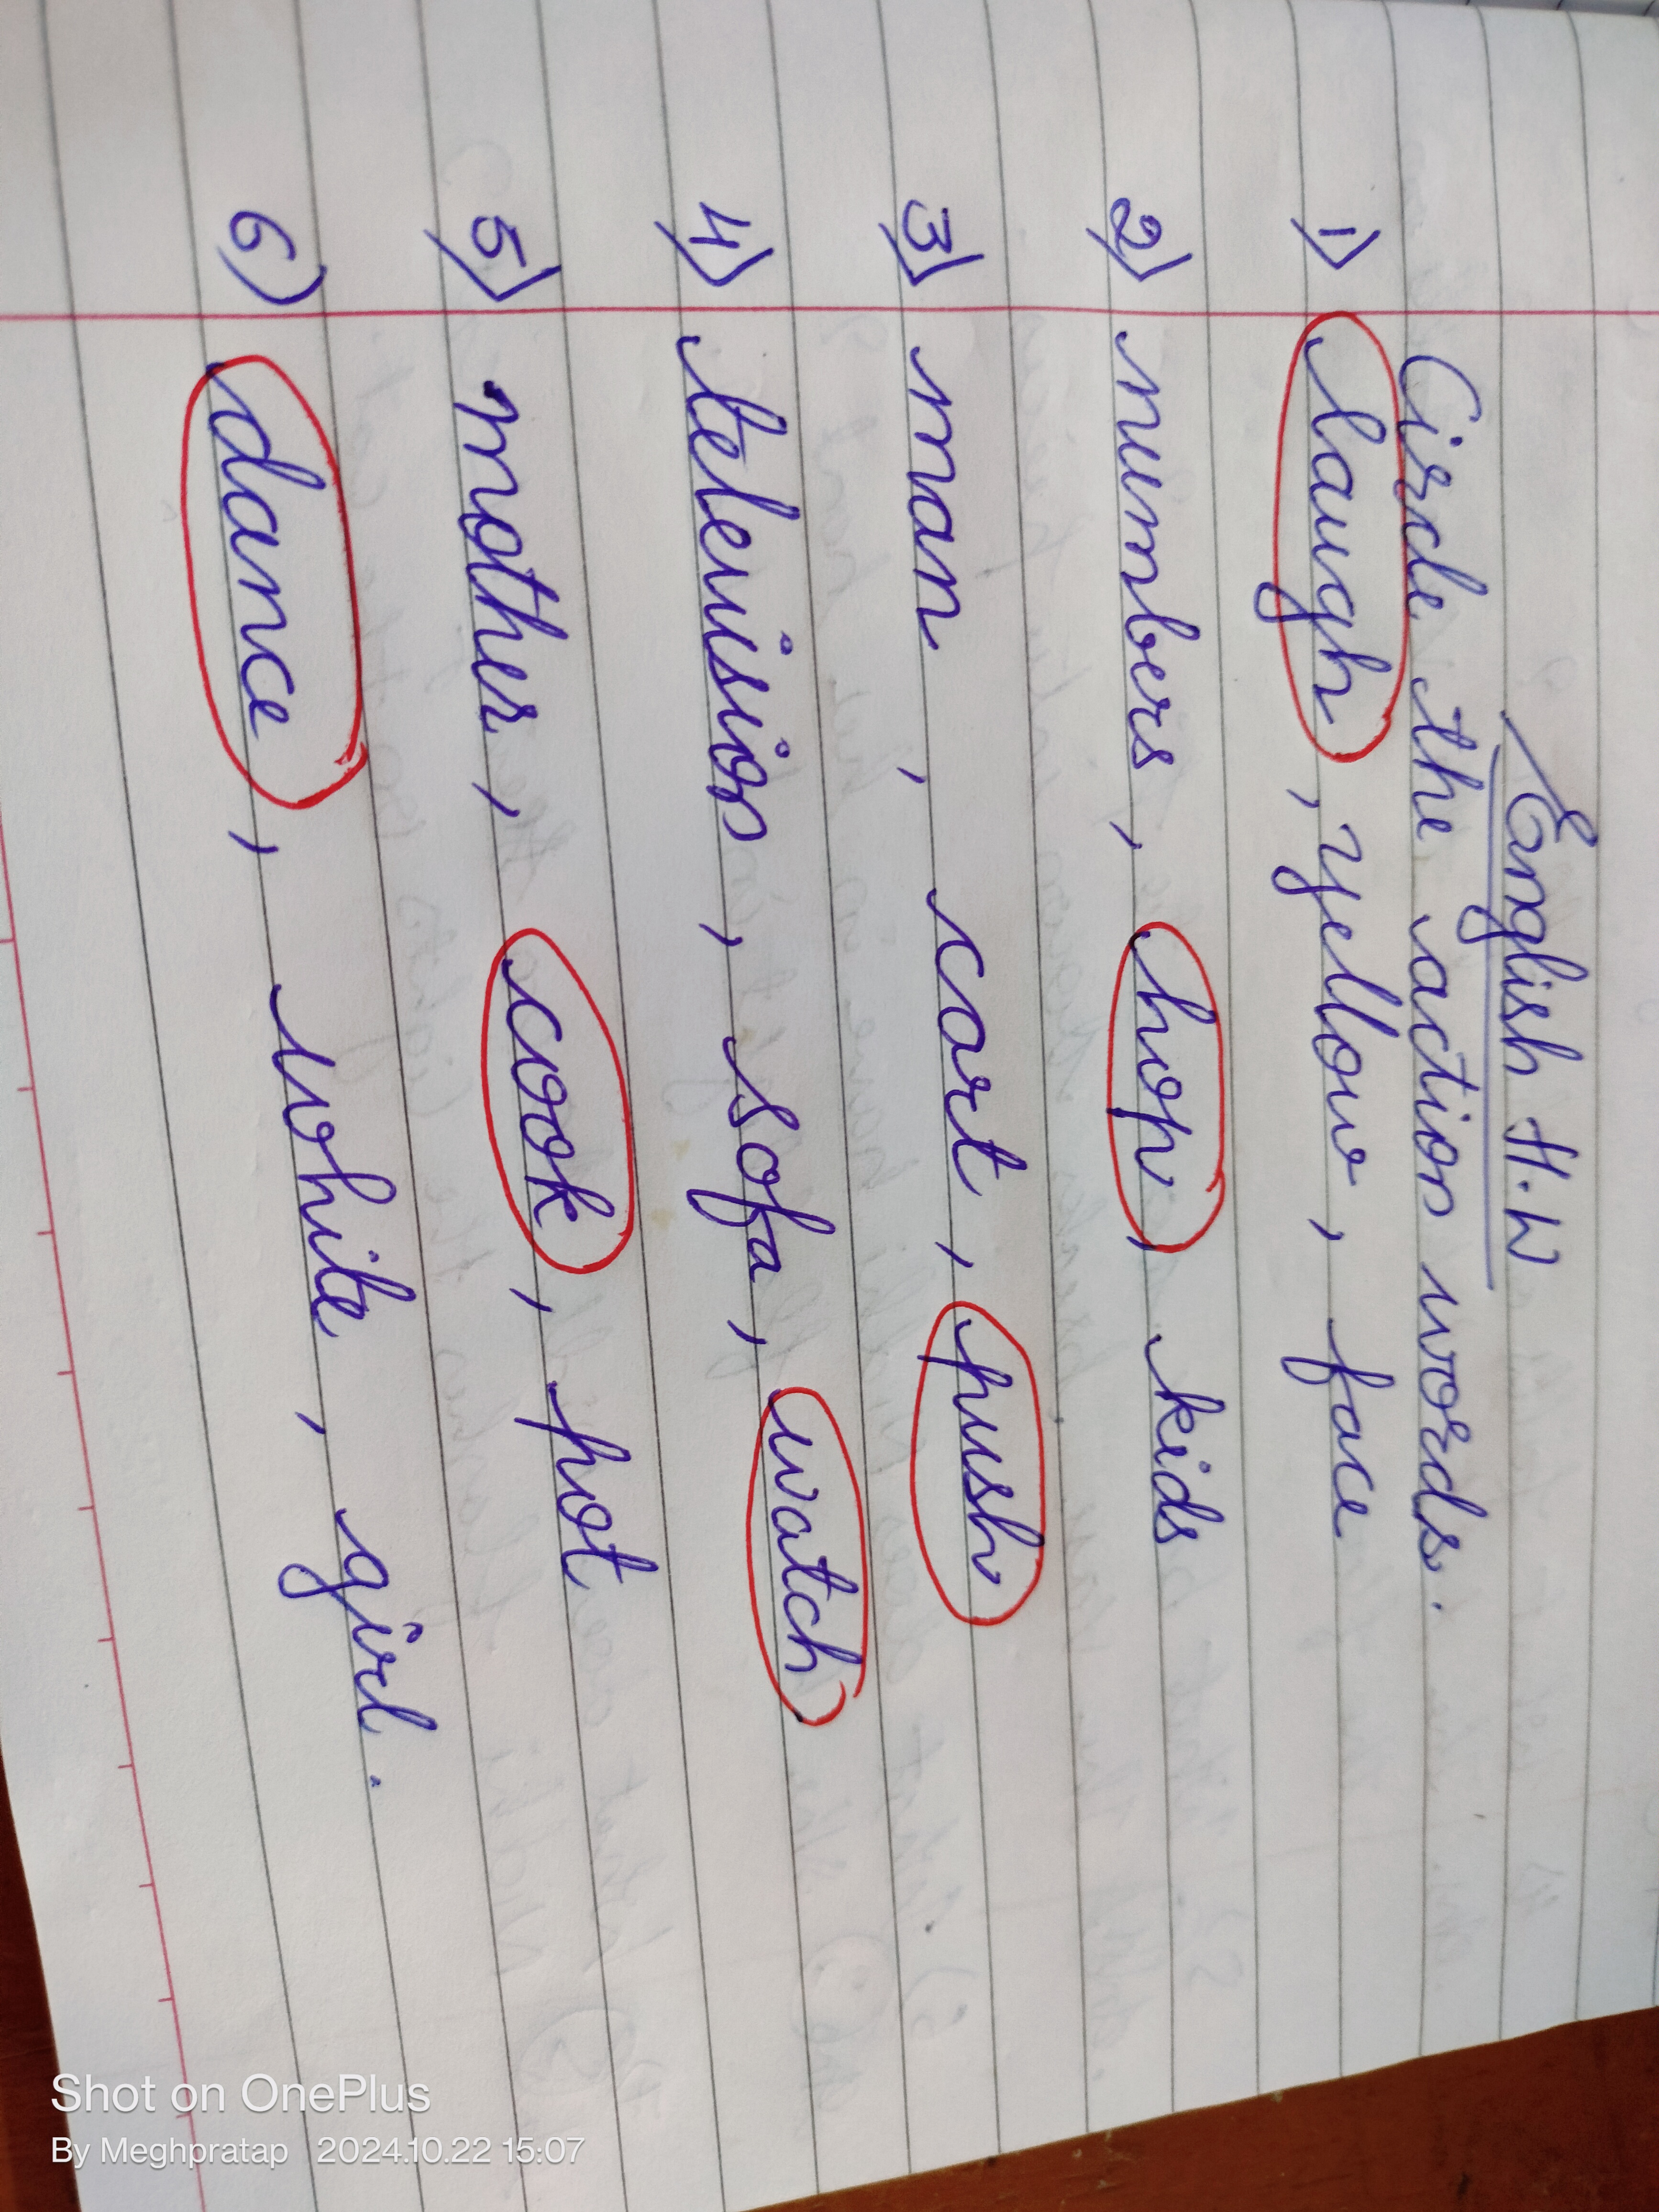 English H.W
Circle the action words.
1) laugh, yellow, face
2) numbers, hop, kids
3) man, cart, push
4) television, sofa, watch
5) mother, cook, pot
6) dance, while, girl.
Shot on OnePlus
By Meghpratap 2024.10.22 15:07